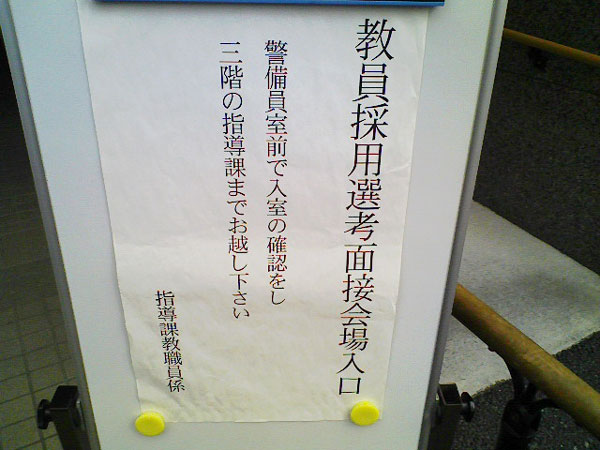 教員採用選考面接会場入口
警備員室前で入室の確認をし
三階の指導課までお越し下さい
指導課教職員係